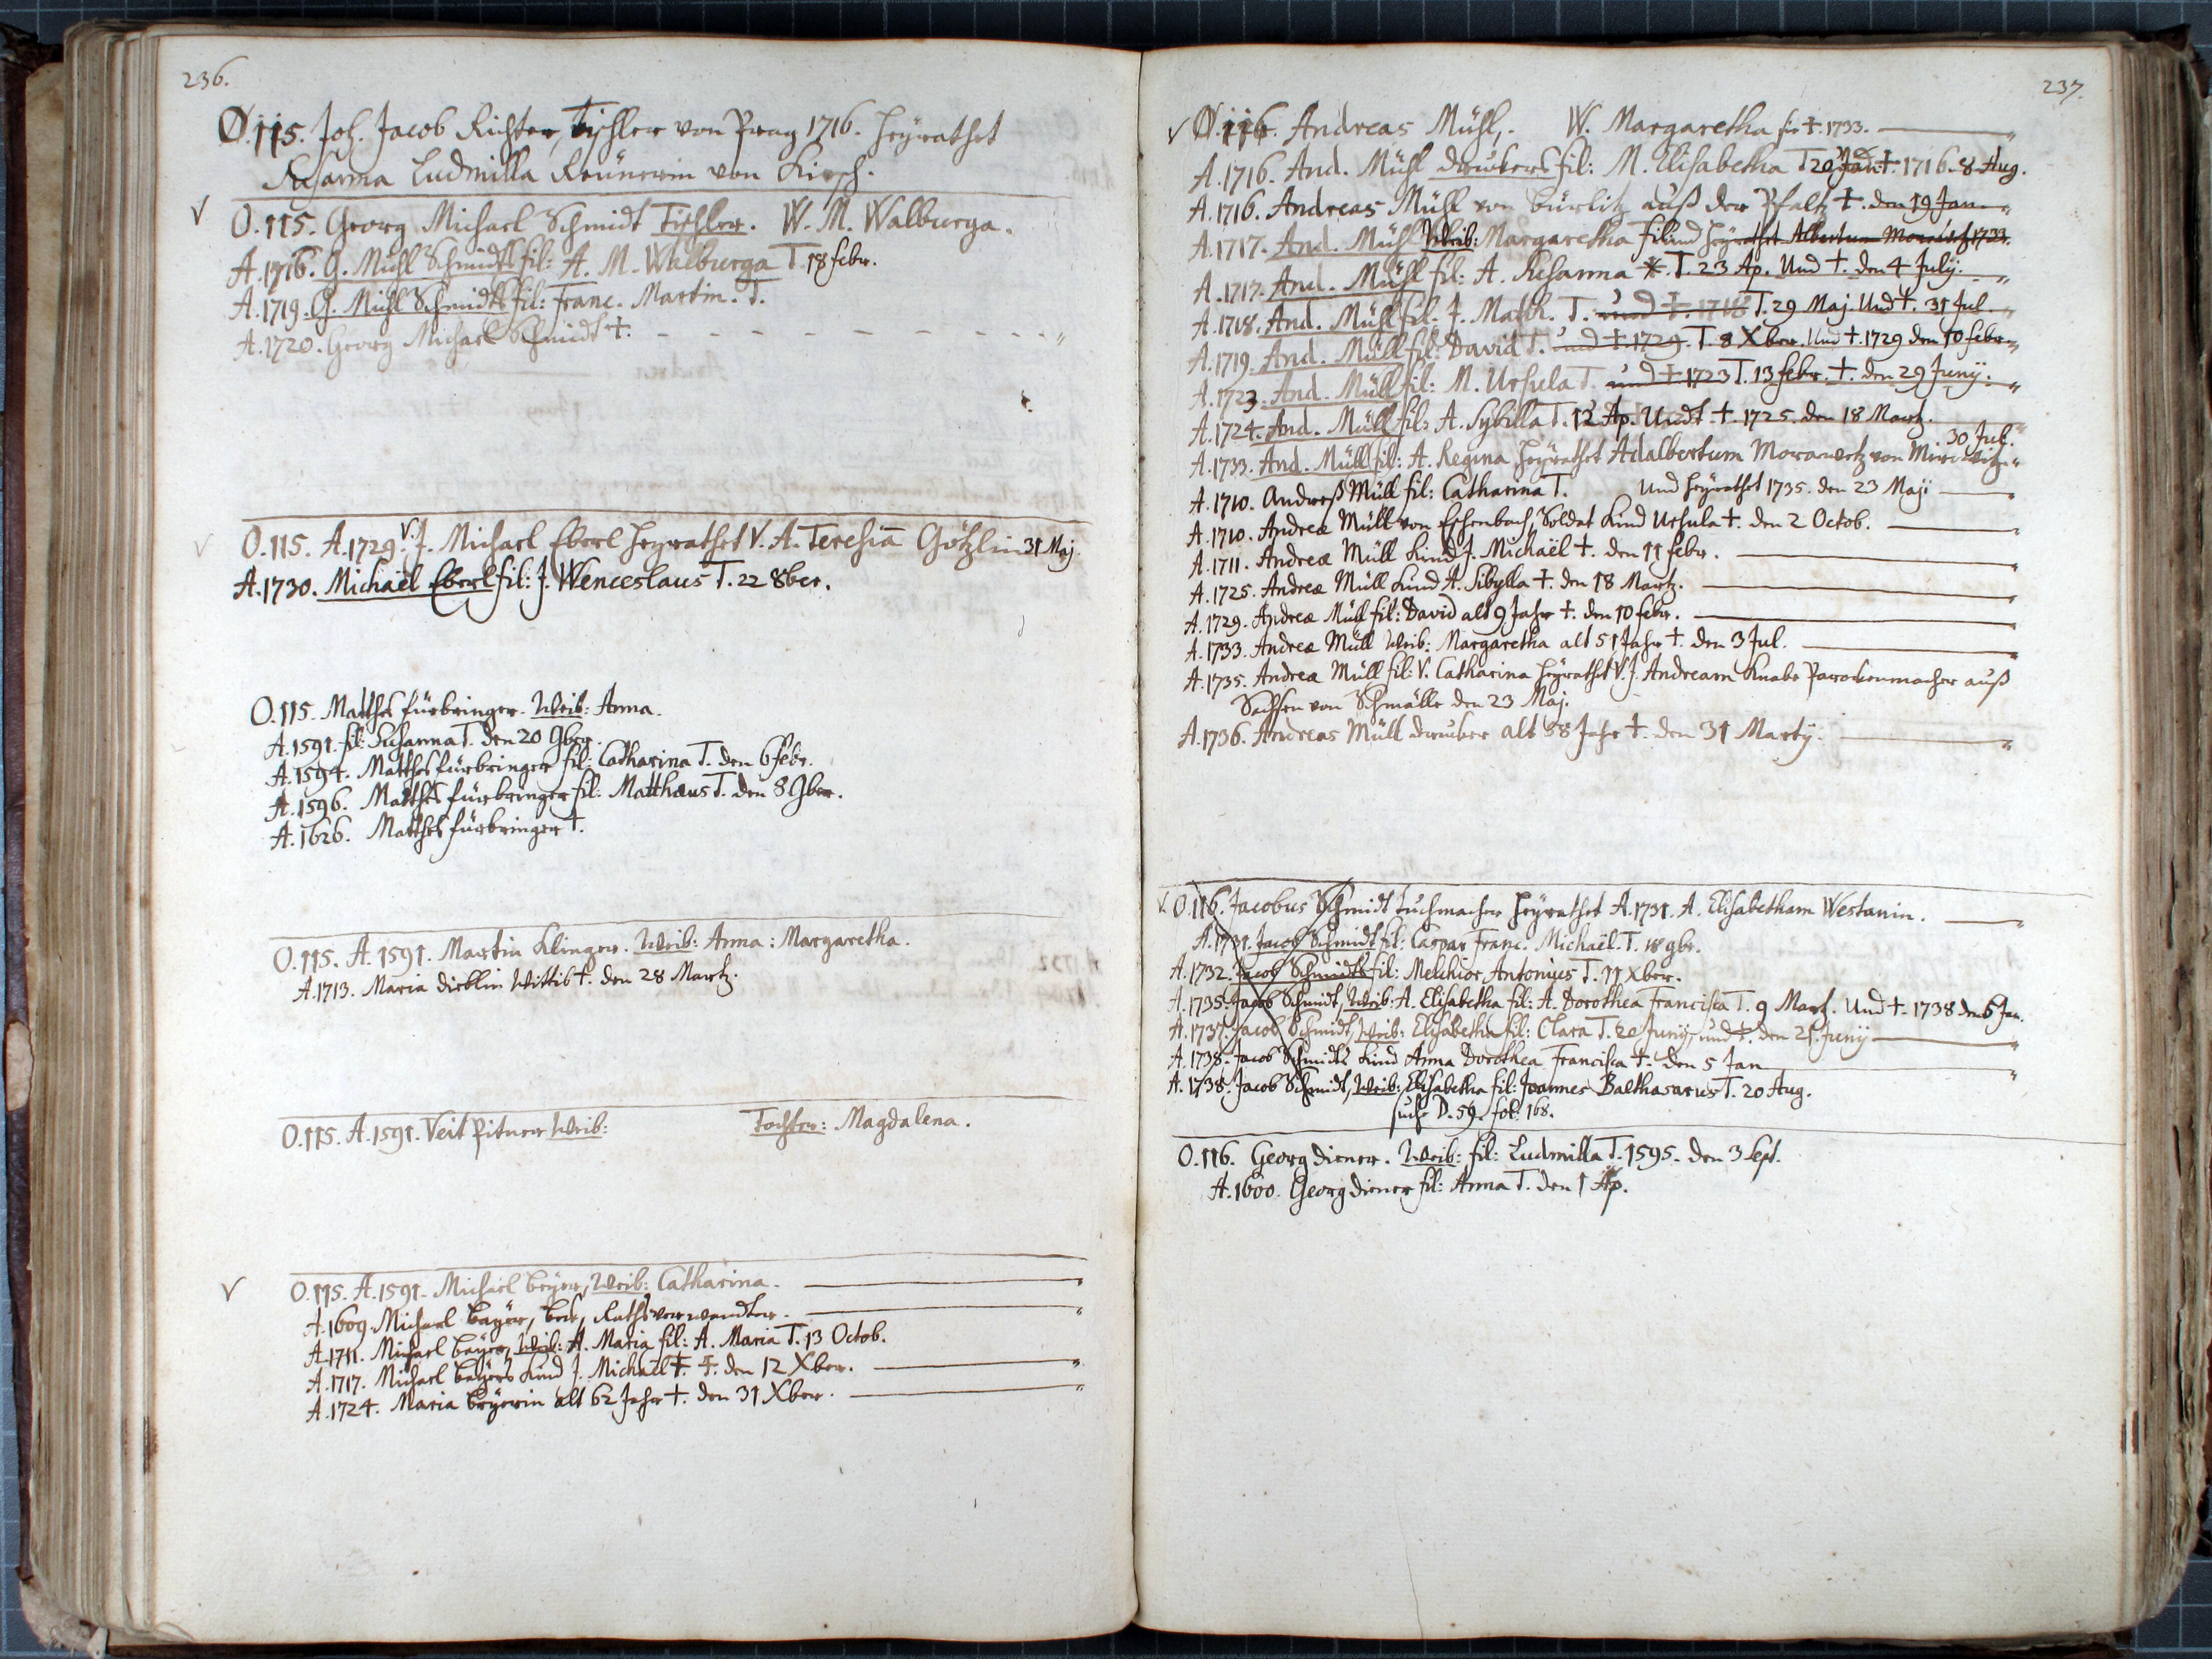 236.
O.115. Joh. Jacob Richter, Tischler von Prag 1716. heÿrathet
Susanna Ludmilla von
O.115. Georg Michael Schmidt Tischler. W. M. Walburga.
A.1716. G. Michl Schmidts fil: A. M. Walburga T. 18 febr.
A.1719. G. Michl Schmidts fil: Franc. Martin. T.
A.1720. Georg Michael Schmidt †.
O.115. A.1729. V. J. Michael Eberl heÿrathet V. A. Teresia Götzlin 31 Maj.
A.1730. Michaël Eberl fil: J. Wenceslaus T. 22 8ber.
O.115. Matthes fürbringer. Weib: Anna.
A.1591. fil: Susanna T. den 20 9ber.
A.1594. Matthes fürbringer fil: Catharina T. den 6 febr.
A.1596. Matthes fürbringer fil: Matthæus T. den 8 9ber.
A.1626. Matthes fürbringer †.
O.115. A.1591. Martin Klinger. Weib: Anna: Margaretha.
A.1713. Maria Wittib †. den 28 Martz.
O.115. A.1591. Veit Pitner Weib: Tochter: Magdalena.
O.115. A.1591. Michael beÿer, Weib: Catharina.
A.1609. Michael baÿer, beck, Rathsverwandter.
A.1711. Michael baÿer, Weib: A. Maria fil: A. Maria T. 13 Octob.
A.1717. Michael baÿers Kind J. Michaël †. †. den 12 Xber.
A.1724. Maria beÿerin alt 62 Jahr †. den 31 Xber.
237.
O.116. Andreas Mühl,. W. Margaretha sie †. 1733.
A.1716. And. Mühl druckers fil: M. Elisabetha T 20 †. 1716. 8 Aug.
A.1716. Andreas Mühl von bürlitz auß der Pfaltz †. den 19 Jan.
A.1717. And. Mühl Weib: Margaretha fil: und heÿrathet Albertum 1733.
A.1717. And. Mühl fil: A. Susanna *. T. 23 Ap. Und †. den 4 Julÿ.
A.1718. And. Mühl fil. J. Math. T. und †. 1718 T. 29 Maj. Und †. 31 Jul.
A.1719. And. Müll fil: David T. und †. 1729. T. 8 Xber. Und †. 1729 den 10 febr.
A.1723. And. Müll fil: M. Ursula T. und †. 1723 T. 13 febr. †. den 29 Junÿ.
A.1724. And. Müll fil: A. Sybilla T. 12 Ap. Undt †. 1725. den 18 Martz.
30 Jul.
A.1733. And. Müll fil: A. Regina heÿrathet Adalbertum Morawetz von
A.1710. Andreß Müll fil: Catharina T. Und heÿrathet 1735. den 23 Maji
A.1710. Andreæ Müll von Eschenbach, Soldat Kind Ursula †. den 2 Octob.
A.1711. Andreæ Müll Kind J. Michaël †. den 11 febr.
A.1725. Andreæ Müll Kind A. Sibylla †. den 18 Martz.
A.1729. Andreæ Müll fil: David alt 9 Jahr †. den 10 febr.
A.1733. Andreæ Müll Weib: Margaretha alt 51 Jahr †. den 3 Jul.
A.1735. Andrea Müll fil: V. Catharina heÿrathet V. J. Andream Knabe Parockenmacher auß
Sachsen von Schmölle den 23 Maj.
A.1736. Andreas Müll drucker alt 58 Jahr †. den 31 Martÿ.
O.116. Jacobus Schmidt tuchmacher heÿrathet A.1731. A. Elisabetham Westanin.
A.1731. Jacob Schmidt fil: Caspar Franc. Michaël. T. 18 9br.
A.1732. Jacob Schmidts fil: Melchior Antonius T. 11 Xber.
A.1735. Jacob Schmidt, Weib: A. Elisabetha fil: A. Dorothea Francisca T. 9 Martz. Und †. 1738 den 6 Jan.
A.1737. Jacob Schmidt, Weib: Elisabetha fil: Clara T. 20 Junÿ, und †. den 21. Junÿ
A.1738. Jacob Schmidts Kind Anna Dorothea Francisca †. den 5 Jan
A.1738. Jacob Schmidt, Weib: Elisabetha fil: Joannes Balthasarus T. 20 Aug.
suche D. 59. fol: 168.
O.116. Georg diener. Weib: fil: Ludmilla T. 1595. den 3 Sept.
A.1600. Georg diener fil: Anna T. den 1 Ap.